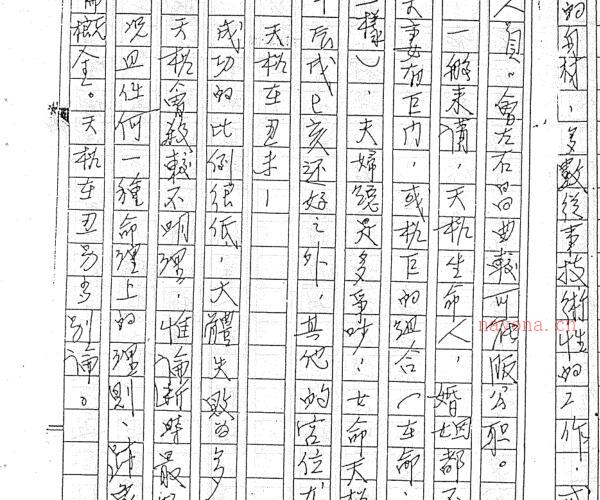 的身材，多數從事技術性的工作，或
人員。會左右昌曲較可能服公職。
一般來講，天機坐命人，婚姻都不
夫妻有巨門，或機巨的組合（在命
一樣），夫婦總是多爭吵；女命天機
辰戌巳亥還好之外，其他的宮位尤
天機在丑未—
成功的比例很低，大體失敗為多
天機會較不明理，推論斷時最
況且任何一種命理上的理則，請
概全。天機在丑另當別論。
nayona.cn